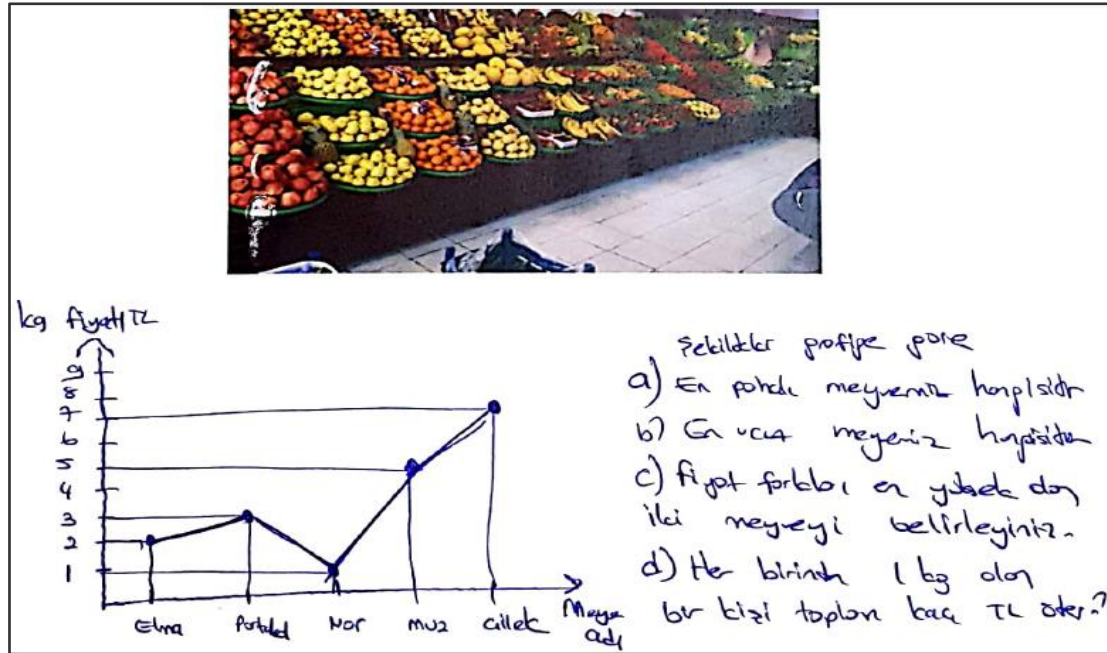 kg fiyatı/TL
9
8
7
6
5
4
3
2
1
Elma Portakal Nar muz Çilek Meyve adı
Şekildeki grafiğe göre
a) En pahalı meyvemiz hangisidir
b) En ucuz meyvemiz hangisidir
c) Fiyat farkları en yüksek olan
iki meyveyi belirleyiniz.
d) Her birinden 1 kg alan
bir kişi toplam kaç TL öder?